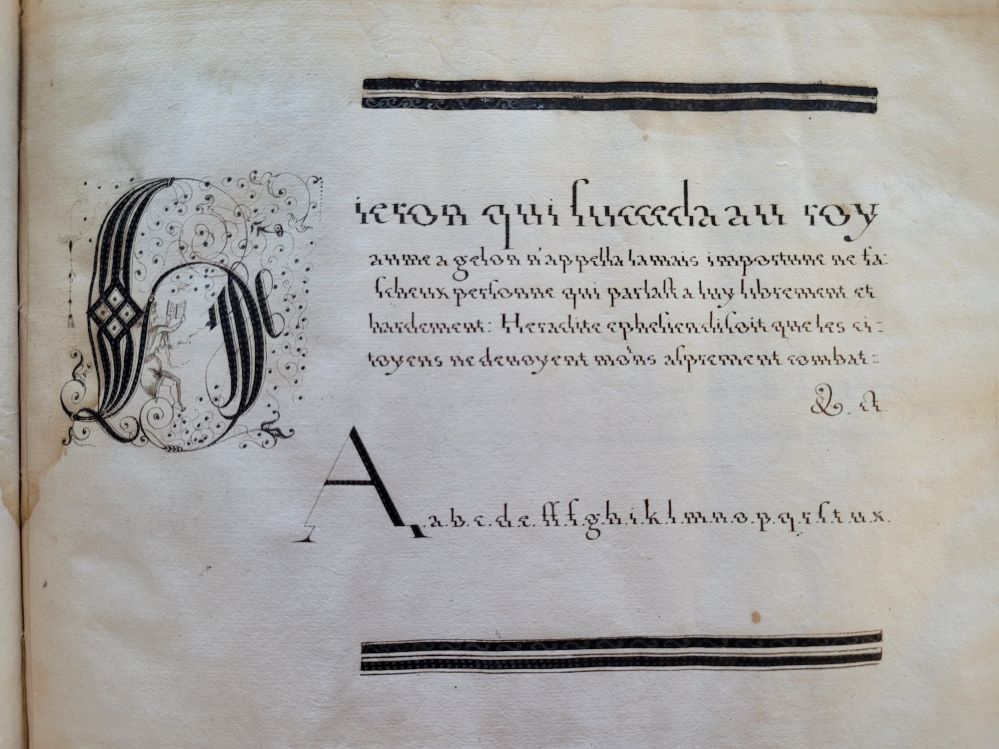 Hieron qui succeda au roy
aume a gelon n'appella iamais importune ne fa:
scheux personne qui parlast a luy librement et
hardement: Heradite ephesien disoit que les ci:
toyens ne devoyent mo'ns asprement combat:
&. a
A.a.b.c.d.e.ff.f.g.h.i.k.l.m.n.o.p.q.r.s.t.u.x.